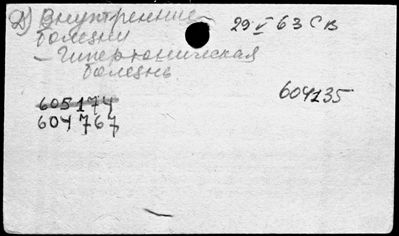 2) Внутренние 29 V 63 СВ
болезни
— Гипертоническая
болезнь
605174 604135
604767